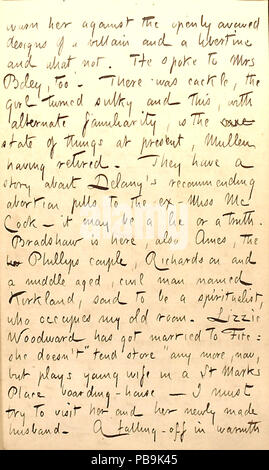 warn her against the openly avowed
designs of a villain and a libertine
and what not. He spoke to Mrs
Boley, too. There was cackle, the
girl turned sulky and this, with
alternate familiarity, is the
state of things at present, Mullen
having retired. They have a
story about Delany's recommending
abortion pills to the ex-Miss Mc
Cook — it may be a lie or a truth.
Bradshaw is here, also Ames, the
Phillips couple, Richardson and
a middle aged, civil man named
Kirkland, said to be a spiritualist,
who occupies my old room. Lizzie
Woodward has got married to Fite:
she doesn't "tend store" any more, now,
but plays young wife in a St Marks
Place boarding-house — I must
try to visit her and her newly made
husband. A falling-off in warmth
alamy stock photo
PB9K45